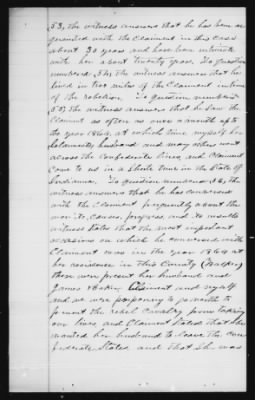 53, the witness answers that he has been ac
quainted with the Claiment in this case
about 30 years and have been intimate
with her about twenty years. To question
numbered 54, the witness answers that he
lived in two miles of the Claimant in time
of the rebelion. To question numbered
55, the witness answers, that he saw the
Claiment as often as once a month up to
the year 1864, at which time myself her
husband and many other went
across the Confederate lines, and Claiment
come to us in a short time in the State of
Indianna. To question numbered 56, the
witness answers that he has conversed
with the Claiment frequently about the
war its causes, progress, and its results
witness states that the most important
occasion on which he conversed with
Claiment was in the year 1864 at
her residence in this County
there were present her husband and
James Claiment and myself
and we were preparing to go north to
prevent the rebel Cavalry from taking
our lives, and Claiment stated that she
wanted her husband to leave the con
federate States and that she was